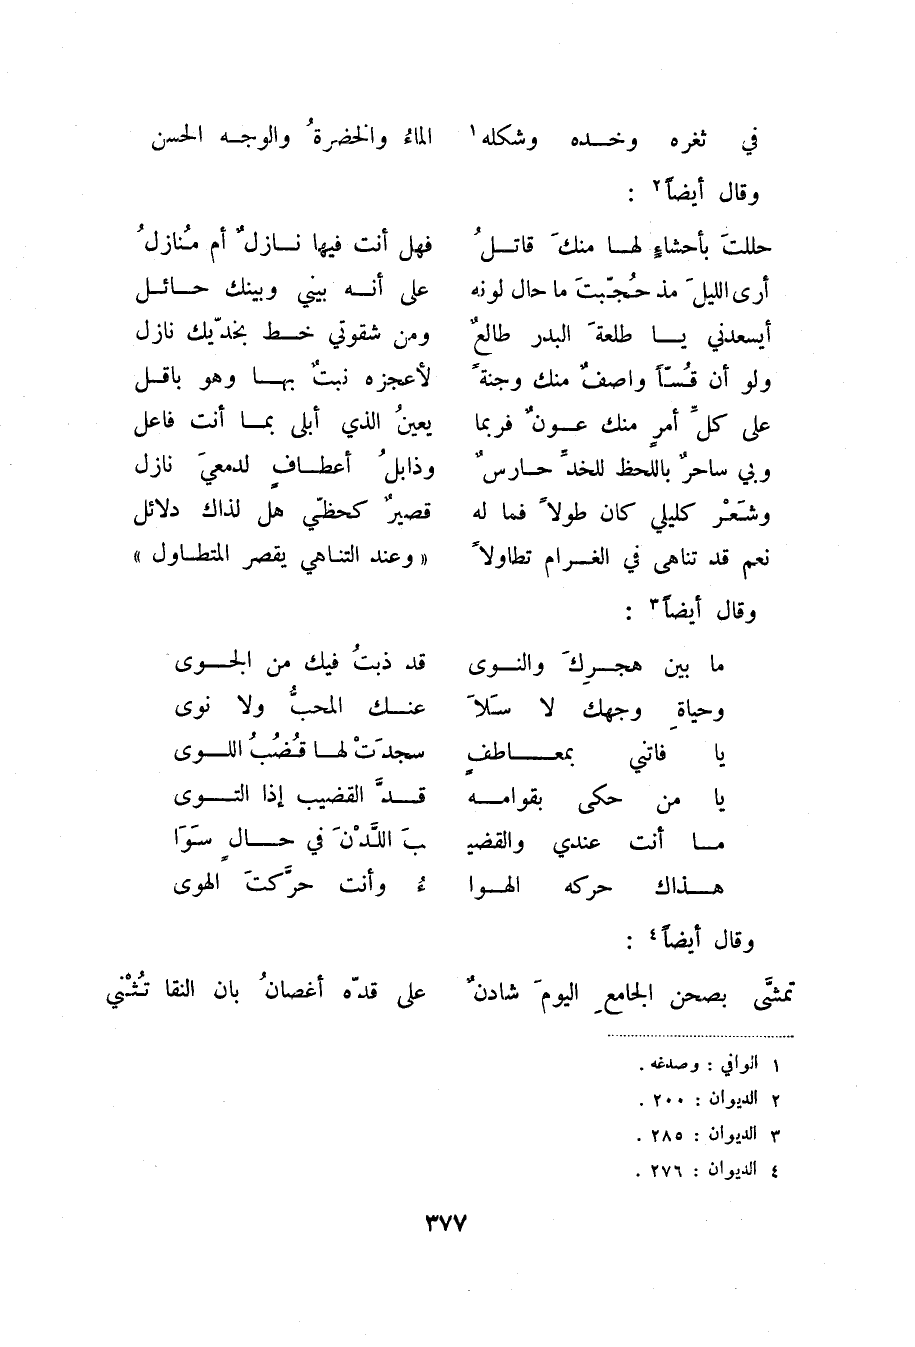 في ثغره وخده وشكله١ الماءُ والخضرةُ والوجه الحسن
وقال أيضاً٢ :
حللتَ بأحشاءٍ لها منكَ قاتلُ فهل أنت فيها نازلٌ أم مُنازلُ
أرى الليلَ مذ حُجّبتَ ما حال لونه على أنه بيني وبينك حائل
أيسعدني يا طلعةَ البدر طالعٌ ومن شقوتي خط بخدّيك نازل
ولو أن قُسّاً واصفٌ منك وجنةً لأعجزه نبتٌ بها وهو باقل
على كلِّ أمرٍ منك عونٌ فربما يعينُ الذي أبلى بما أنت فاعل
وبي ساحرٌ باللحظ للخدِّ حارسٌ وذابلُ أعطافٍ لدمعيَ نازل
وشَعْر كليلي كان طولاً فما له قصيرٌ كحظّي هل لذاك دلائل
نعم قد تناهى في الغرام تطاولاً « وعند التناهي يقصر المتطاول »
وقال أيضاً٣ :
ما بين هجرِكَ والنوى قد ذبتُ فيك من الجوى
وحياةِ وجهك لا سَلاَ عنك المحبُّ ولا نوى
يا فاتني بمعاطفٍ سجدَتْ لها قُضُبُ اللوى
يا من حكى بقوامه قدَّ القضيب إذا التوى
ما أنت عندي والقضيـ ـبَ اللَّدْنَ في حالٍ سَوَا
هذاك حركه الهوا ءُ وأنت حرَّكتَ الهوى
وقال أيضاً٤ :
تمشَّى بصحن الجامعِ اليومَ شادنٌ على قدّه أغصانُ بان النقا تُثْني
١ الوافي : وصدغه .
٢ الديوان : ٢٠٠ .
٣ الديوان : ٢٨٥ .
٤ الديوان : ٢٧٦ .
٣٧٧